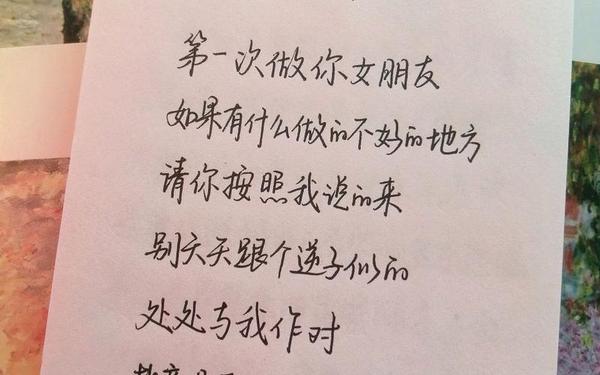 第一次做你女朋友
如果有什么做的不好的地方
请你按照我说的来
别天天跟个逆子似的
处处与我作对